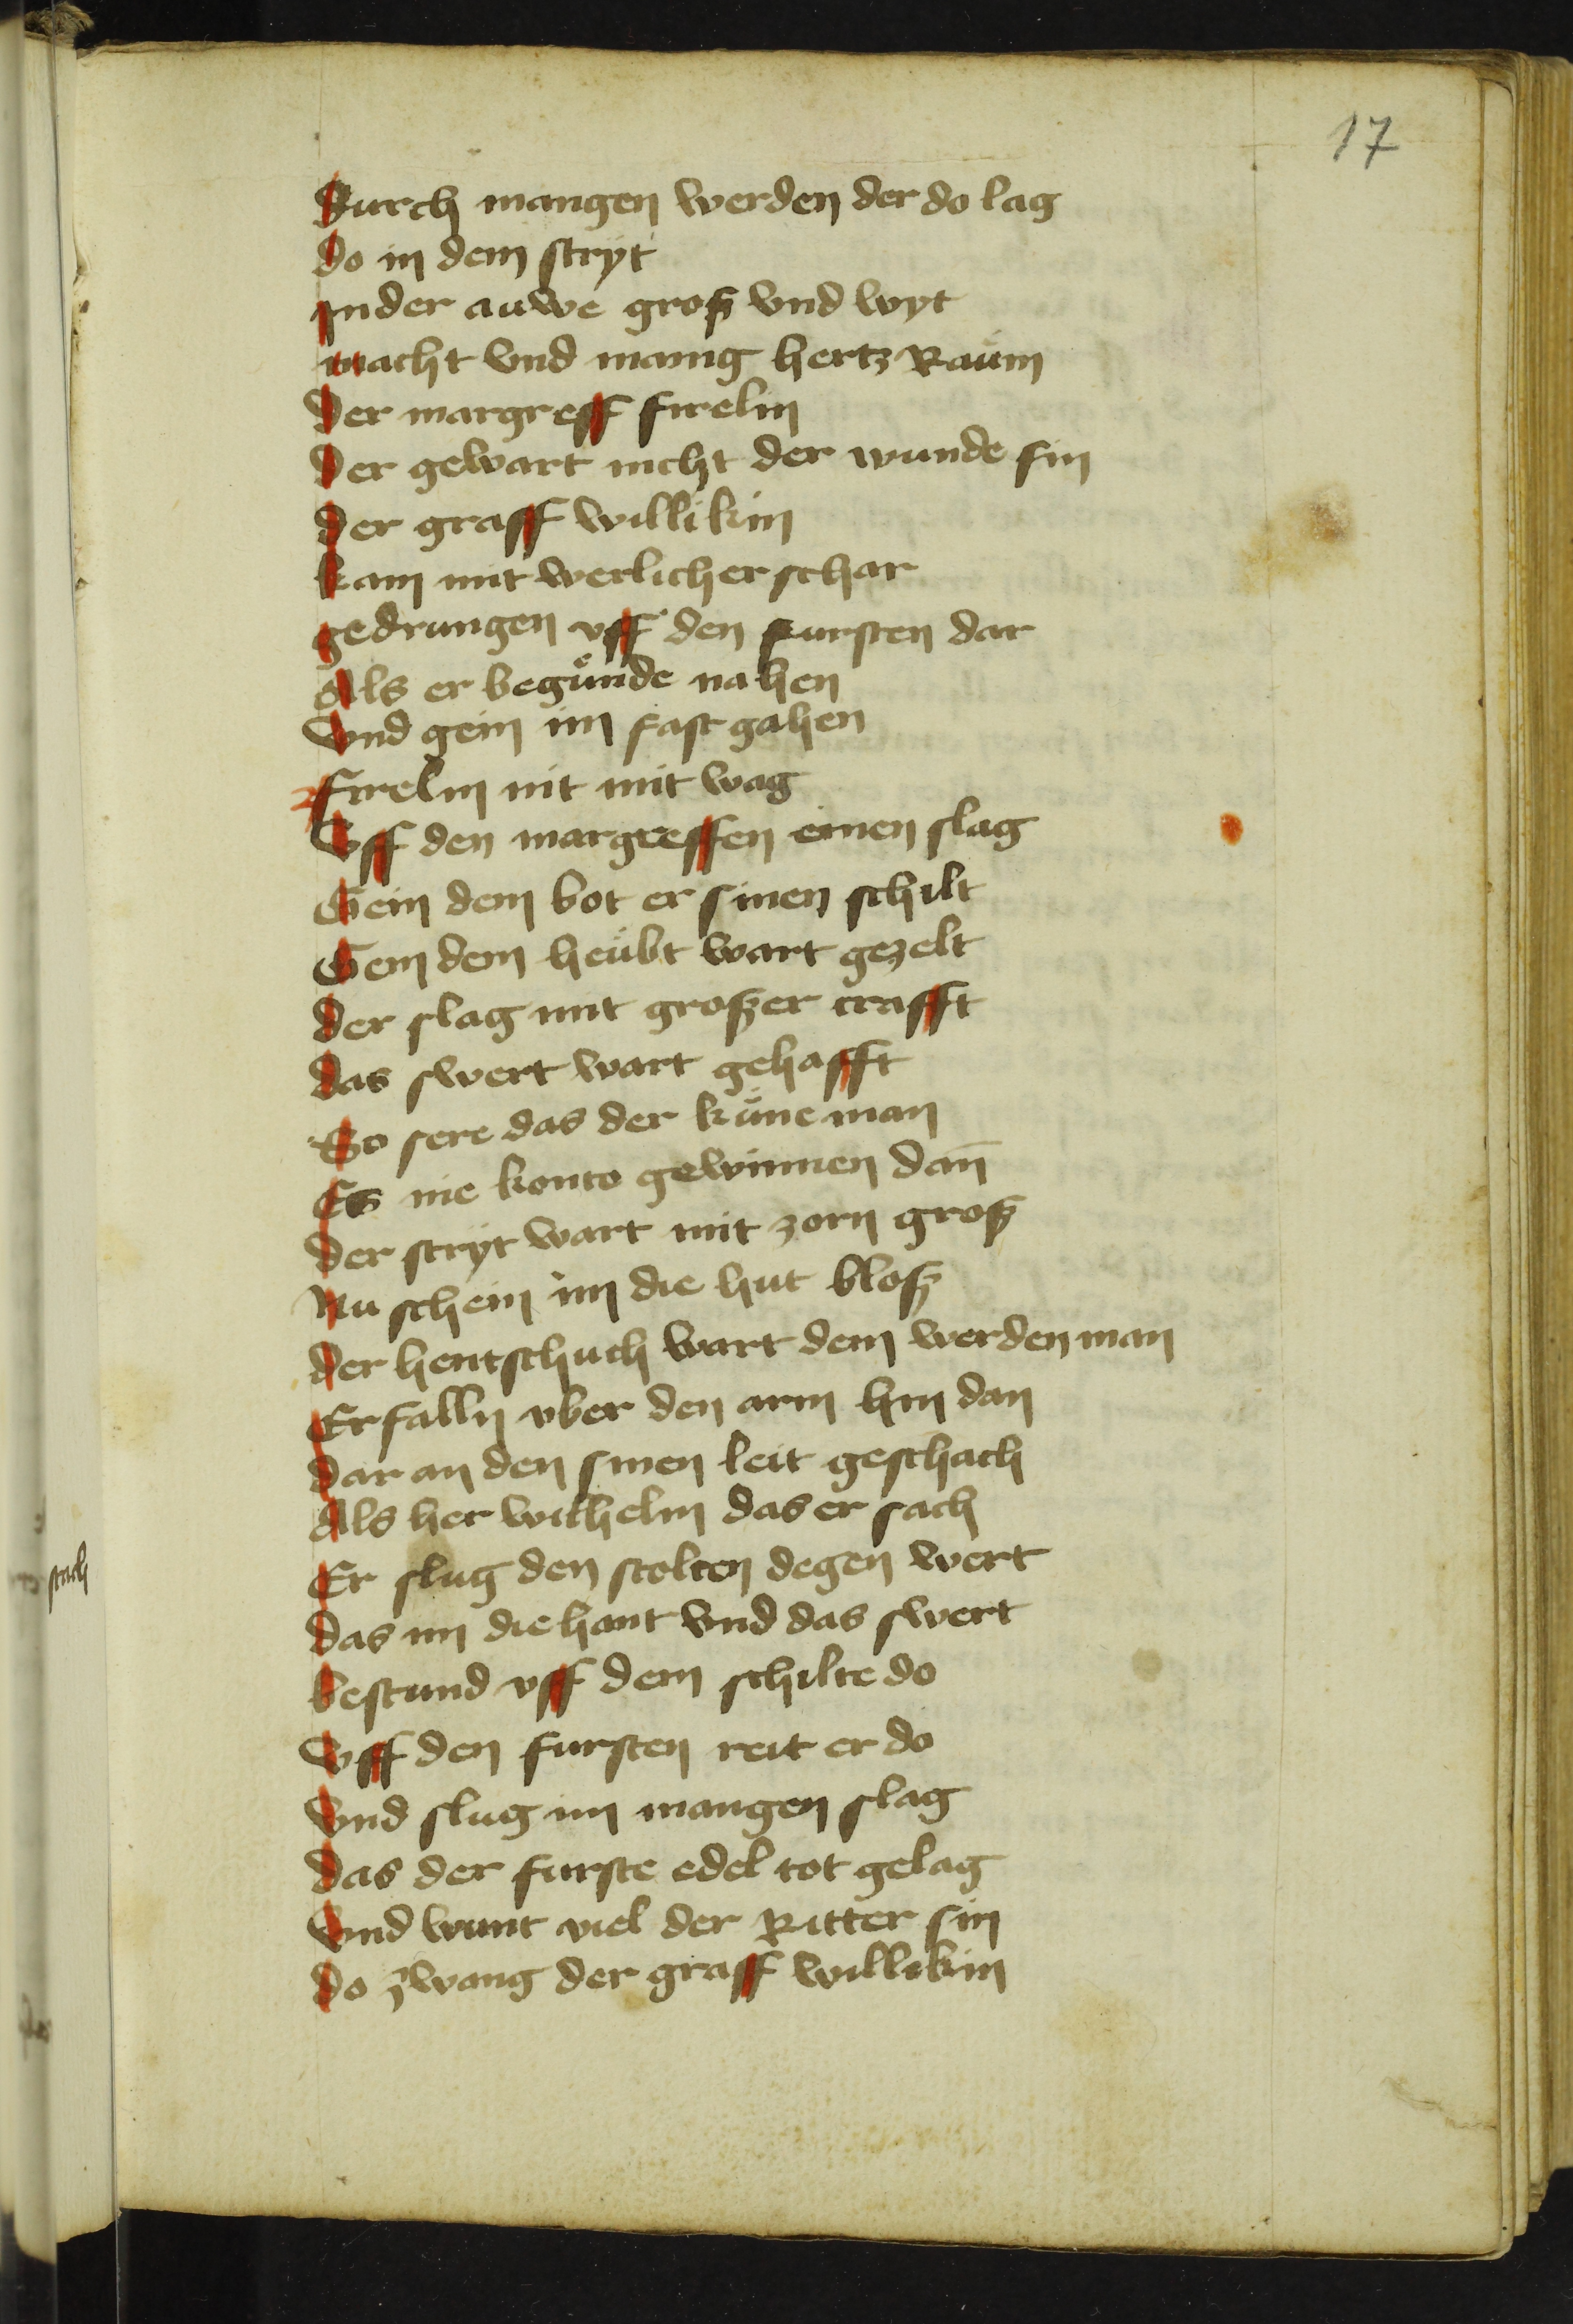 17
Durch mangen werden der do lag
do in dem stryt
Jn der auwe groß vnd wyt
macht vnd manig hertz Raum
Der margreff firelin
Der gewart nicht der wunde sin
Der graff willikin
kam mit werlicher schar
gedrungen vff den fursten dar
Als er begůnde nahen
Vnd gein im fast gahen
Firelin nit mit wag
Vff den margreffen einen slag
Gein dem bot er sinen schilt
Gein dem heubt wart gezelt
Der slag mit großer crafft
Das swert wart gehafft
So sere das der küne man
Es nie konto gewinnen dañ
Der stryt wart mit zorn groß
Nu schein im die hut bloß
Der hentschuch wart dem werden man
Erfalln vber den arm hin dan
Dar an den sinen leit geschach
Als her wilhelm das er sach
Er slug den stolten degen wert
Das im die hant vnd das swert
bestund vff dem schilte do
Vff den fursten reit er do
Vnd slug im mangen slag
Das der furste edel tot gelag
Vnd wunt viel der Ritter sin
Do zwang der graff willikin
stach